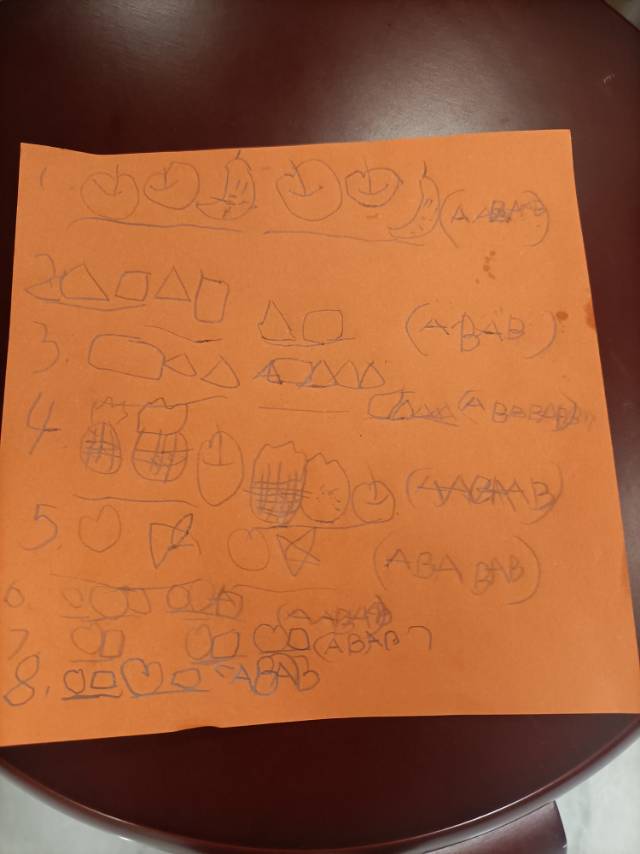 1. (AABAAB)
2. (ABAB)
3. (ABBB
4 (AABAAB)
5. (ABABAB)
6. (AABAAB)
7. (ABAB)
8. ABAB